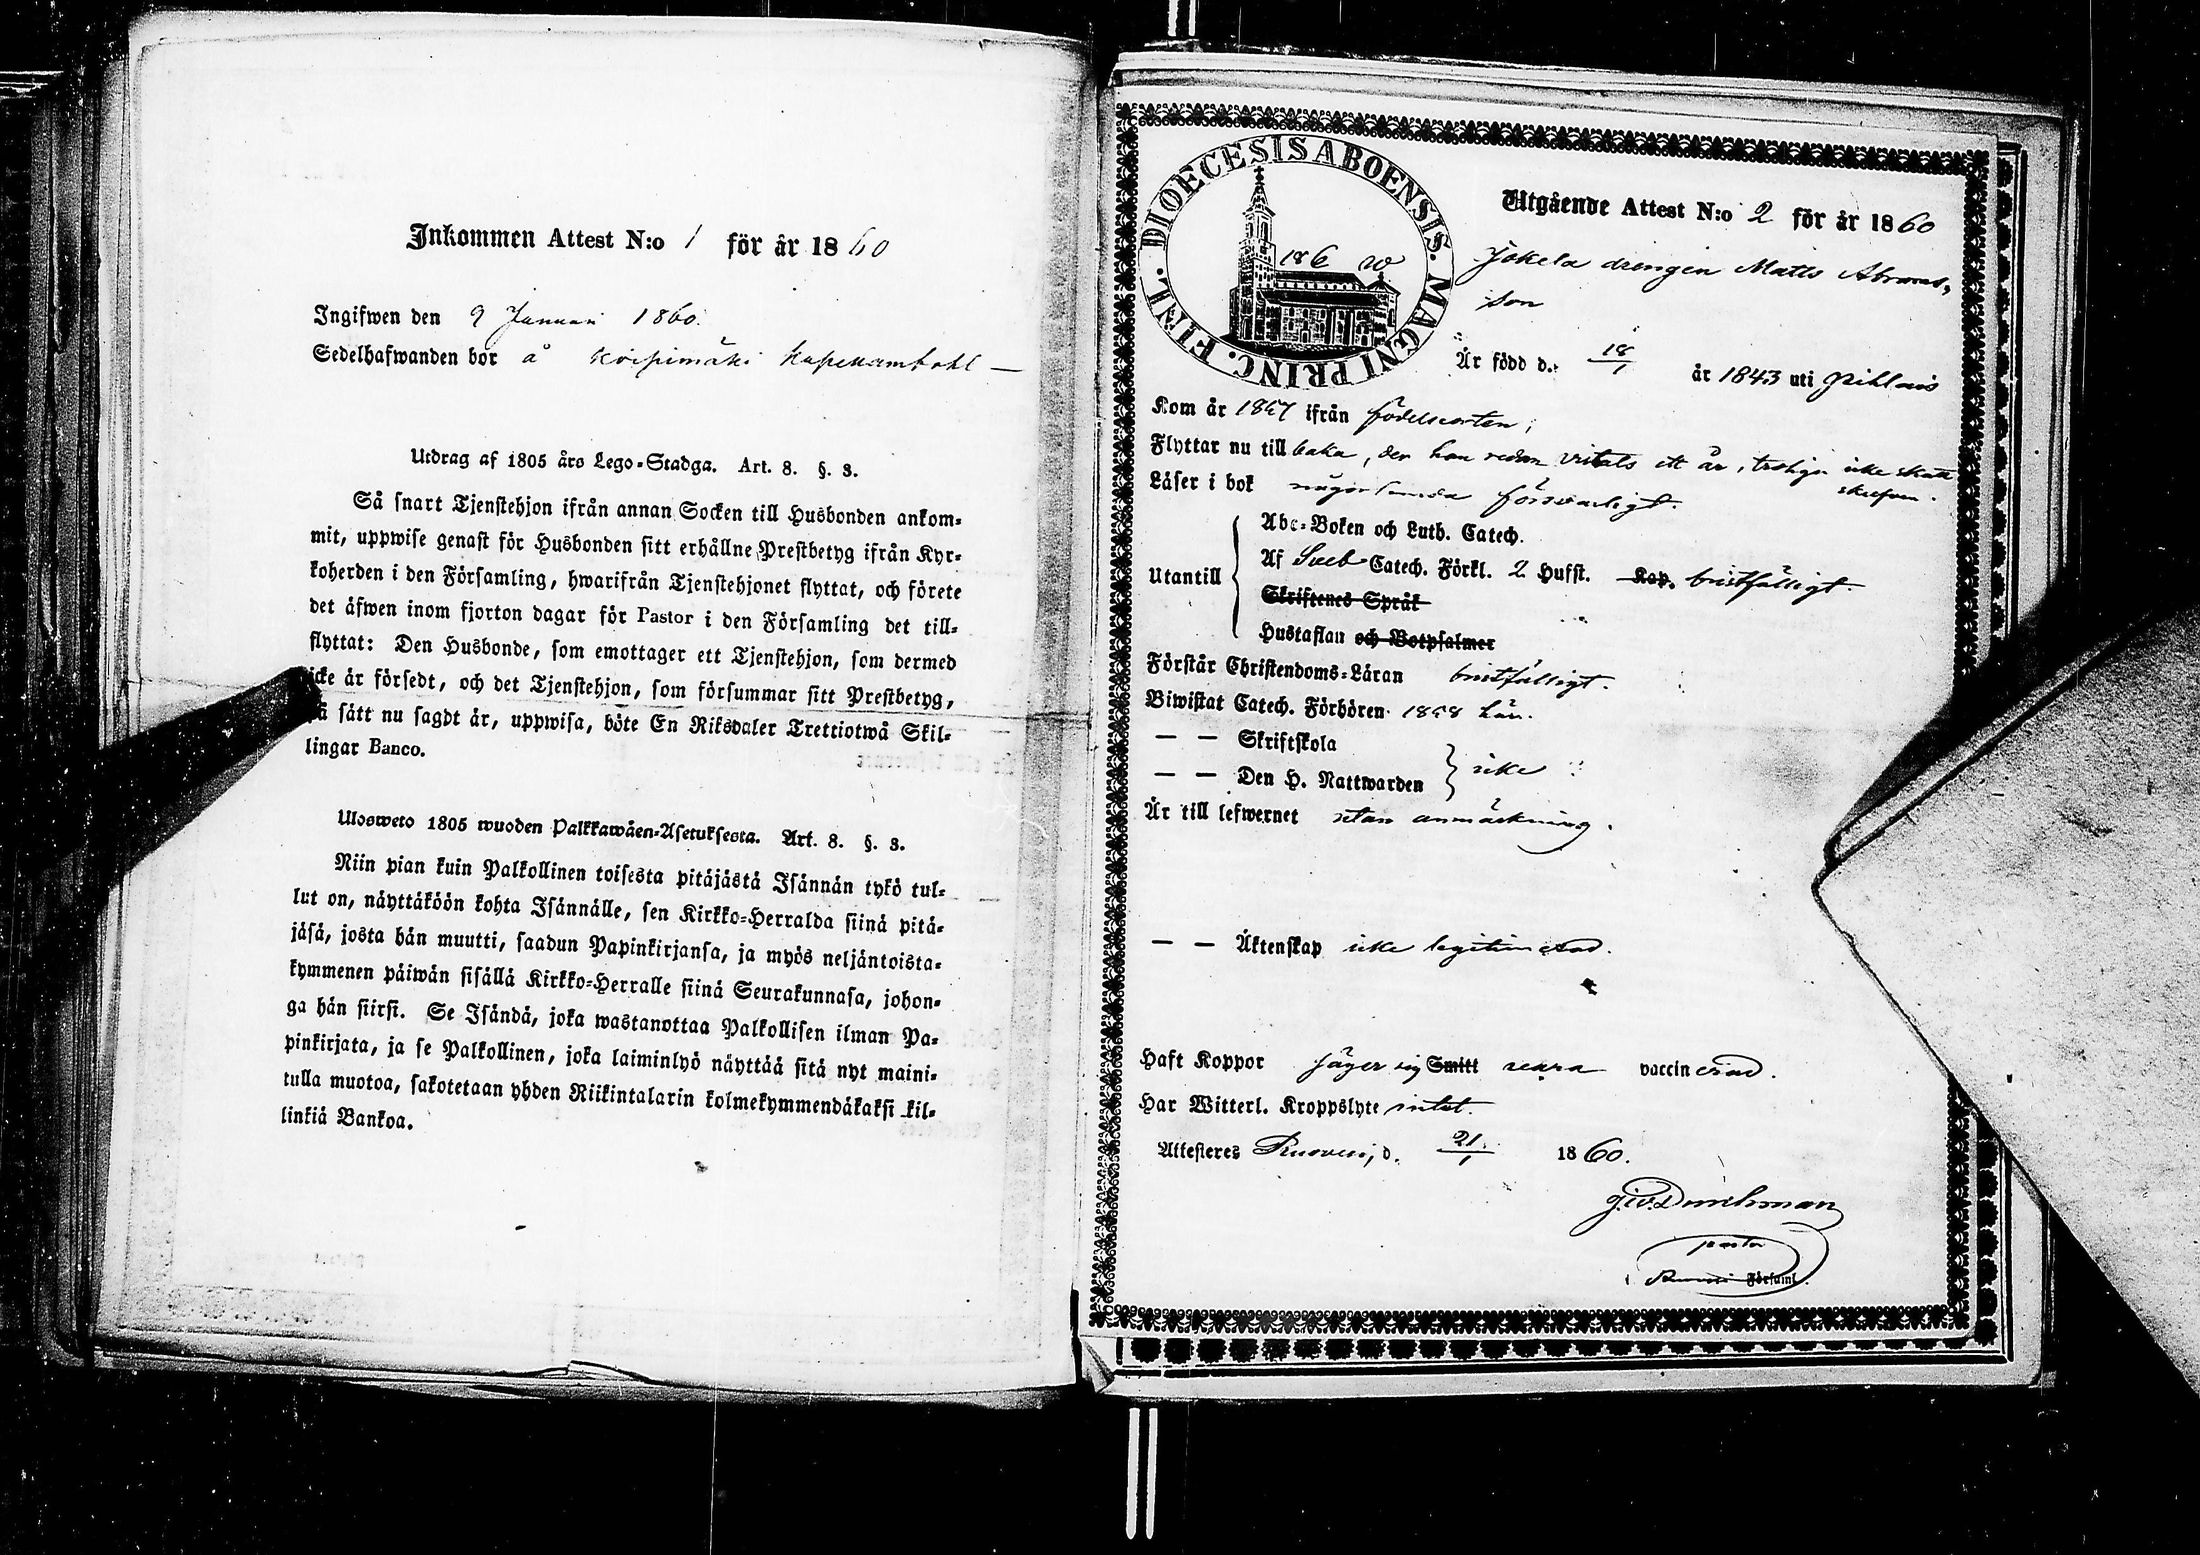 Inkommen Attest N:o 1 för år 1860
Ingifwen den 9 Januari 1860.
Sedelhafwanden bor å
Utdrag af 1805 års Lego-Stadga. Art. 8. §. 3.
Så snart Tjenstehjon ifrån annan Socken till Husbonden ankom-
mit, uppwise genast för Husbonden sitt erhållne Prestbetyg ifrån Kyr-
koherden i den Församling, hwarifrån Tjenstehjonet flyttat, och förete
det äfwen inom fjorton dagar för Pastor i den Församling det till-
flyttat: Den Husbonde, som emottager ett Tjenstehjon, som dermed
icke är försedt, och det Tjenstehjon, som försummar sitt Prestbetyg,
på sätt nu sagdt är, uppwisa, böte En Riksdaler Trettiotwå Skil-
lingar Banco.
Ulosweto 1805 wuoden Palkkawäen-Asetuksesta. Art. 8. §. 3.
Niin pian kuin Palkollinen toisesta pitäjästä Isännän tykö tul-
lut on, näyttäköön kohta Isännälle, sen Kirkko-Herralda siinä pitä-
jäsä, josta hän muutti, saadun Papinkirjansa, ja myös neljäntoista-
kymmenen päiwän sisällä Kirkko-Herralle siinä Seurakunnasa, johon-
ga hän siirsi. Se Isändä, joka wastanottaa Palkollisen ilman Pa-
pinkirjata, ja se Palkollinen, joka laiminlyö näyttää sitä nyt maini-
tulla muotoa, sakotetaan yhden Riikintalarin kolmekymmendäkaksi kil-
linkiä Bankoa.
DIOECESIS ABOENSIS. MAGNI PRINC. FINL.
186
Utgående Attest N:o 2 för år 1860
Jokela drengen Matts Abrams-
son
Är född d. 18/1 år 1843 uti
Kom år 1857 ifrån födelseorten;
Flyttar nu till baka, der han redan vistats ett år, troligen icke skatt
skrefven.
Läser i bok någorlunda försvarligt.
Utantill
Abc-Boken och Luth. Catech.
Af Sveb Catech. Förkl. 2 Hufst. Kap. bristfälligt.
Skriftenes Språk
Hustaflan och Botpsalmer
Förstår Christendoms-Läran bristfälligt.
Biwistat Catech. Förhören 1858 här.
— — Skriftskola
— — Den H. Nattwarden } icke
Är till lefwernet utan anmärkning.
— — Äktenskap icke legitimerad.
Haft Koppor säger sig Smitt vara vaccinerad.
Har Witterl. Kroppslyte intet.
Attesteres d. 21/1 1860.
pastor
Församl.